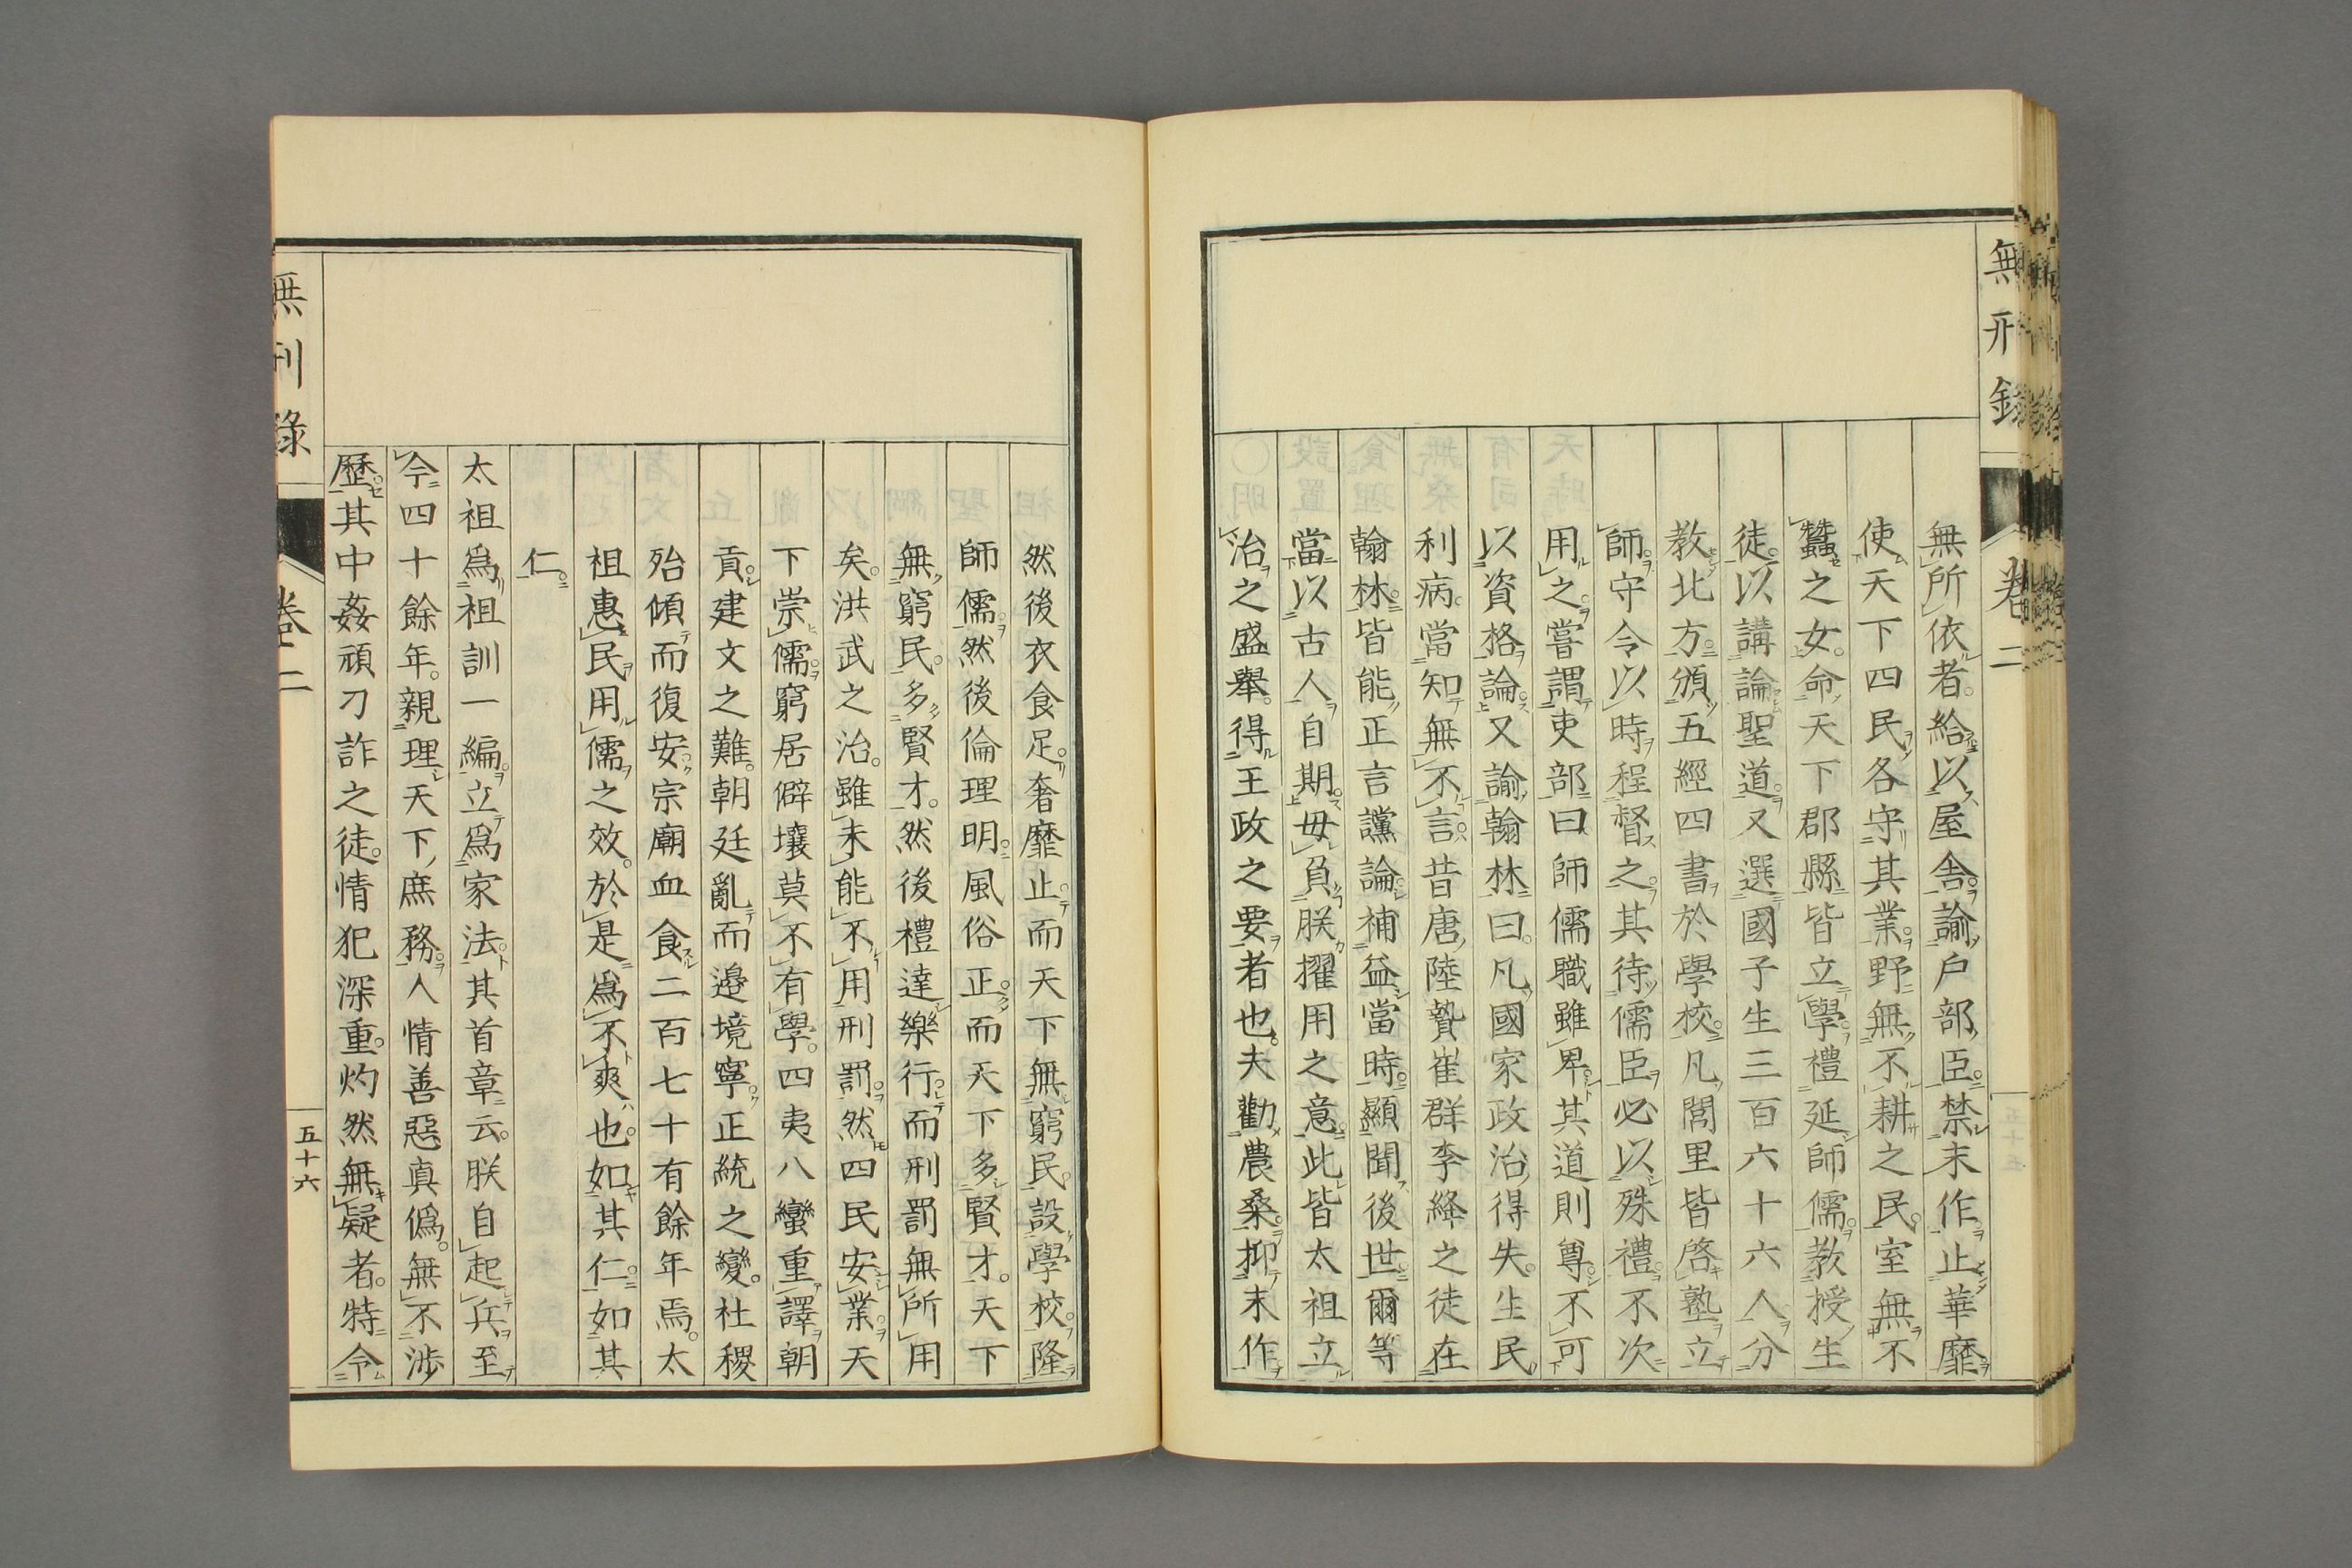 無刑錄 卷二
無所依者。給以屋舍。諭戶部臣。禁末作。止華靡
使天下四民。各守其業。野無不耕之民。室無不
蠶之女。命天下郡縣。皆立學。禮延師儒。教授生
徒。以講論聖道。又選國子生三百六十六人。分
教北方。頒五經四書於學校。凡閭里皆啓塾立
師。守令以時程督之。其待儒臣。必以殊禮。不次
用之。嘗謂吏部曰。師儒職雖卑。其道則尊。不可
以資格論。又諭翰林曰。凡國家政治得失。生民
利病。當知無不言。昔唐陸贄崔群李絳之徒。在
翰林。皆能正言讜論。補益當時。顯聞後世。爾等
當以古人自期。毋負朕擢用之意。此皆太祖立
治之盛舉。得王政之要者也。夫勸農桑。抑末作
然後衣食足。奢靡止。而天下無窮民。設學校。隆
師儒。然後倫理明。風俗正。而天下多賢才。天下
無窮民。多賢才。然後禮達樂行。而刑罰無所用
矣。洪武之治。雖未能不用刑罰。然四民安業。天
下崇儒。窮居僻壤。莫不有學。四夷八蠻。重譯朝
貢。建文之難。朝廷亂而邊境寧。正統之變。社稷
殆傾而復安。宗廟血食。二百七十有餘年焉。太
祖惠民用儒之效。於是爲不爽也。如其仁。如其
仁。
太祖爲祖訓一編。立爲家法。其首章云。朕自起兵至
今四十餘年。親理天下庶務。人情善惡眞僞。無不涉
歷。其中姦頑刁詐之徒。情犯深重。灼然無疑者。特令
無刑錄 卷二 五十六